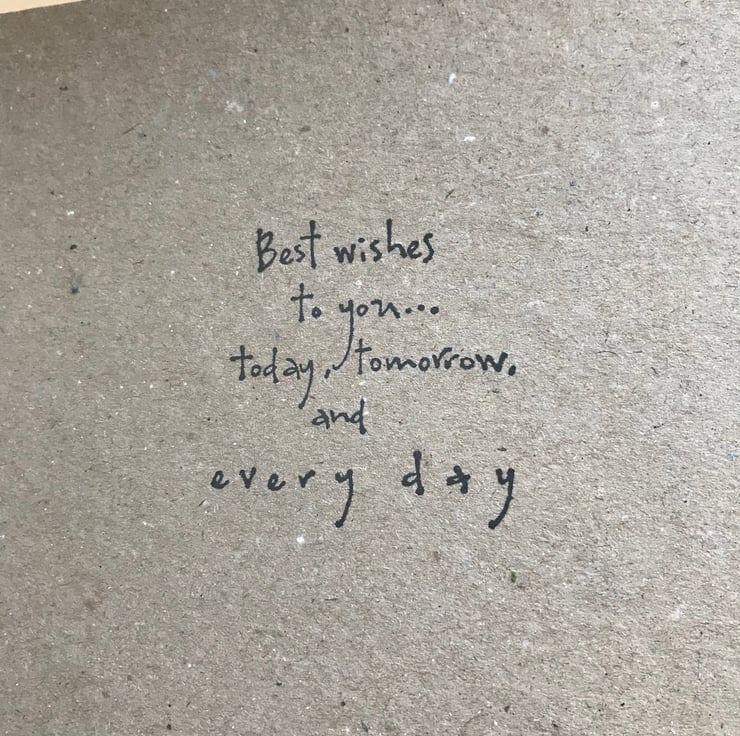 Best wishes
to you...
today, tomorrow,
and
every day